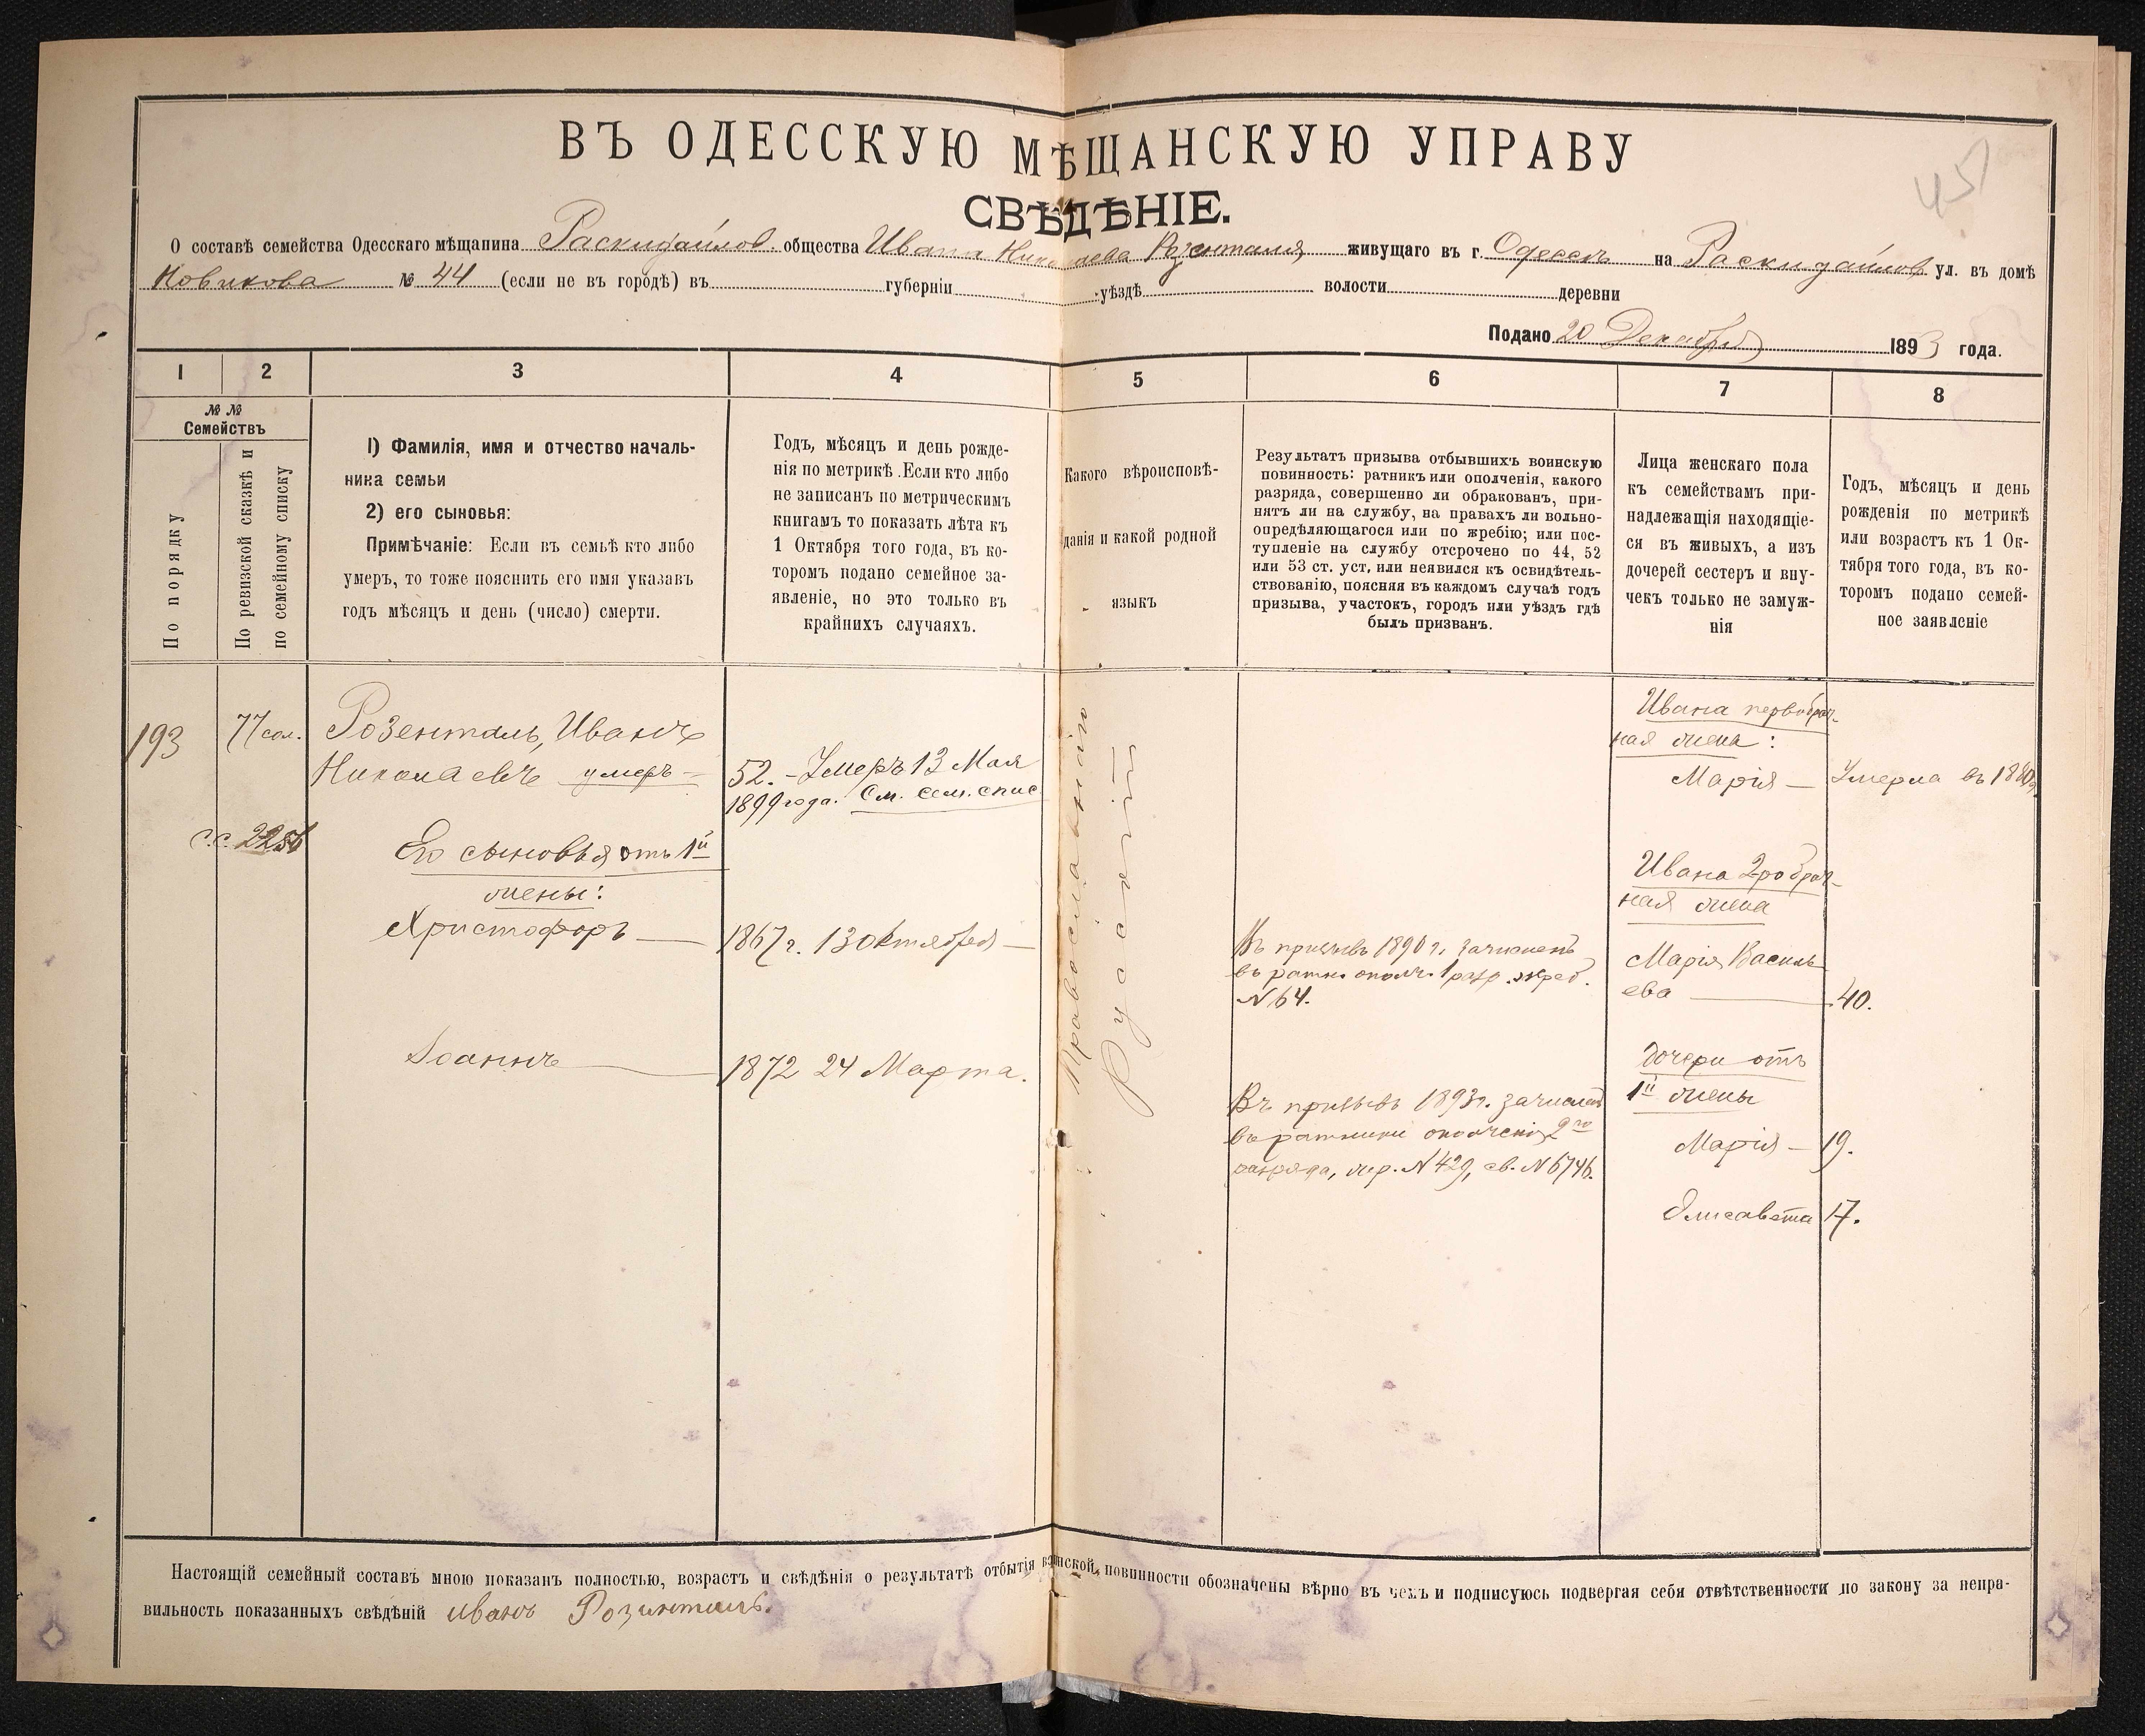 ВЪ ОДЕССКУЮ МѢЩАНСКУЮ УПРАВУ
СВѢДѢНІЕ.
О составѣ семейства Одесскаго мѣщанина Раскидайлов. общества Ивана Николаева Розенталя живущаго въ г. Одессѣ на Раскидайлов ул. въ домѣ
Новикова № 44 (если не въ городѣ) въ губерніи уѣздѣ волости деревни
Подано 20 Декабря 1893 года.
1 2 3 4 5 6 7 8
№ №
Семействъ
По порядку
По ревизской сказкѣ и
по семейному списку
1) Фамилія, имя и отчество началь-
ника семьи
2) его сыновья:
Примѣчаніе: Если въ семьѣ кто либо
умеръ, то тоже пояснить его имя указавъ
годъ мѣсяцъ и день (число) смерти.
Годъ, мѣсяцъ и день рожде-
нія по метрикѣ. Если кто либо
не записанъ по метрическимъ
книгамъ то показать лѣта къ
1 Октября того года, въ ко-
торомъ подано семейное за-
явленіе, но это только въ
крайнихъ случаяхъ.
Какого вѣроисповѣ-
данія и какой родной
языкъ
Результатъ призыва отбывшихъ воинскую
повинность: ратникъ или ополченія, какого
разряда, совершенно ли обракованъ, при-
нятъ ли на службу, на правахъ ли вольно-
опредѣляющагося или по жребію; или пос-
тупленіе на службу отсрочено по 44, 52
или 53 ст. уст. или неявился къ освидѣтель-
ствованію, поясняя въ каждомъ случаѣ годъ
призыва, участокъ, городъ или уѣздъ гдѣ
былъ призванъ.
Лица женскаго пола
къ семействамъ при-
надлежащія находящіе-
ся въ живыхъ, а изъ
дочерей сестеръ и вну-
чекъ только не замуж-
нія
Годъ, мѣсяцъ и день
рожденія по метрикѣ
или возрастъ къ 1 Ок-
тября того года, въ ко-
торомъ подано семей-
ное заявленіе
193
77
с.с. 2256
Розенталь, Иванъ
Николаевъ умеръ
Его сыновья отъ 1й
жены:
Христофоръ
Іоаннъ
52. - Умеръ 13 Мая
1899 года. См. сем. спис.
1867 г. 13 Октября
1872 24 Марта.
Православнаго
Русскій
Въ призывъ 1890 г. зачисленъ
въ ратн. ополч. 1 разр. жреб.
N 64.
Въ призывъ 1893 г. зачисленъ
въ ратники ополченія 2го
разряда, жер. N 429, св. N 6746.
Ивана первобрач-
ная жена:
Марія
Ивана 2робрач-
ная жена
Марія Василь
ева
Дочери отъ
1й жены
Марія
Елисавета
Умерла въ
40.
19.
17.
Настоящій семейный составъ мною показанъ полностью, возрастъ и свѣдѣнія о результатѣ отбытія воинской повинности обозначены вѣрно въ чемъ и подписуюсь подвергая себя отвѣтственности по закону за непра-
вильность показанныхъ свѣдѣній Иванъ Розенталь.